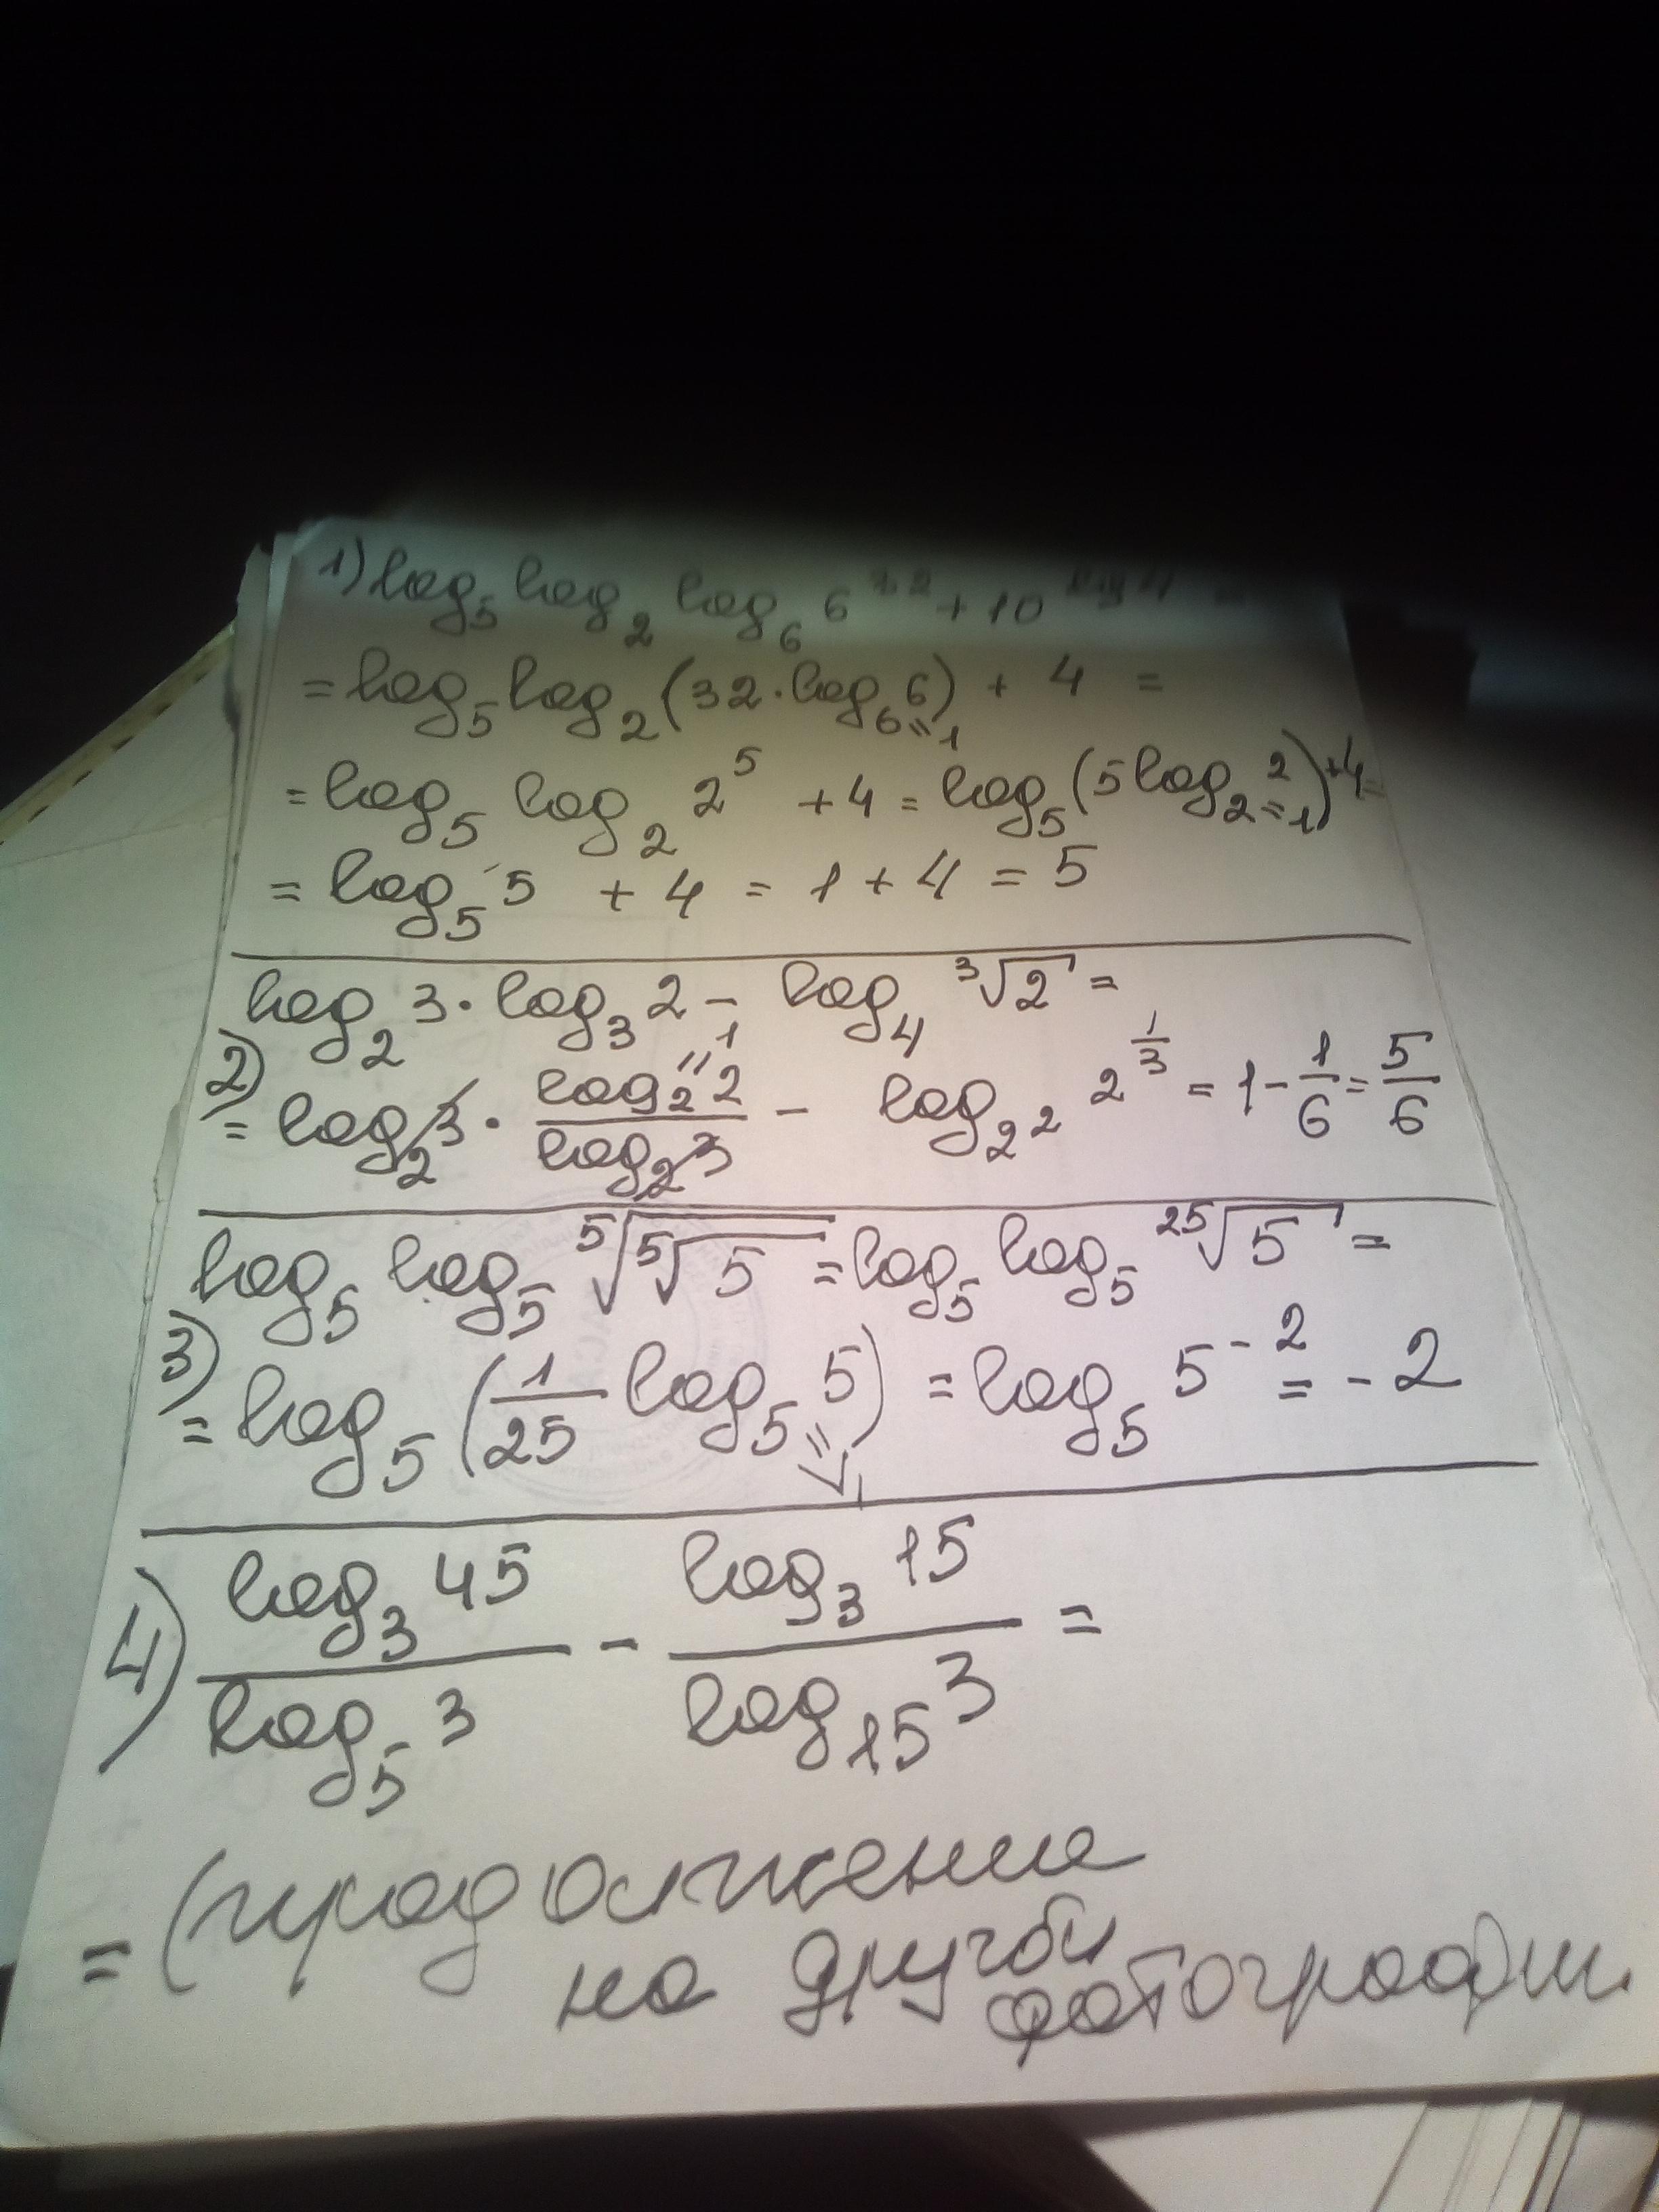 1) log₅ log₂ log₆ 6³² + 10^(lg 4) =
= log₅ log₂ (32 · log₆ 6) + 4 =
" 1
= log₅ log₂ 2⁵ + 4 = log₅ (5 log₂ 2) + 4 =
= 1
= log₅ 5 + 4 = 1 + 4 = 5
log₂ 3 · log₃ 2 - log₄ ³√2 =
2)
1
"
= log₂ 3 · (log₂ 2)/(log₂ 3) - log_(2²) 2^(1/3) = 1 - 1/6 = 5/6
log₅ log₅ ⁵√(⁵√5) = log₅ log₅ ²⁵√5 =
3)
= log₅ (1/25 log₅ 5) = log₅ 5⁻² = -2
" 1
4) (log₃ 45)/(log₅ 3) - (log₃ 15)/(log₁₅ 3) =
= (продолжение
на другой
фотографии.